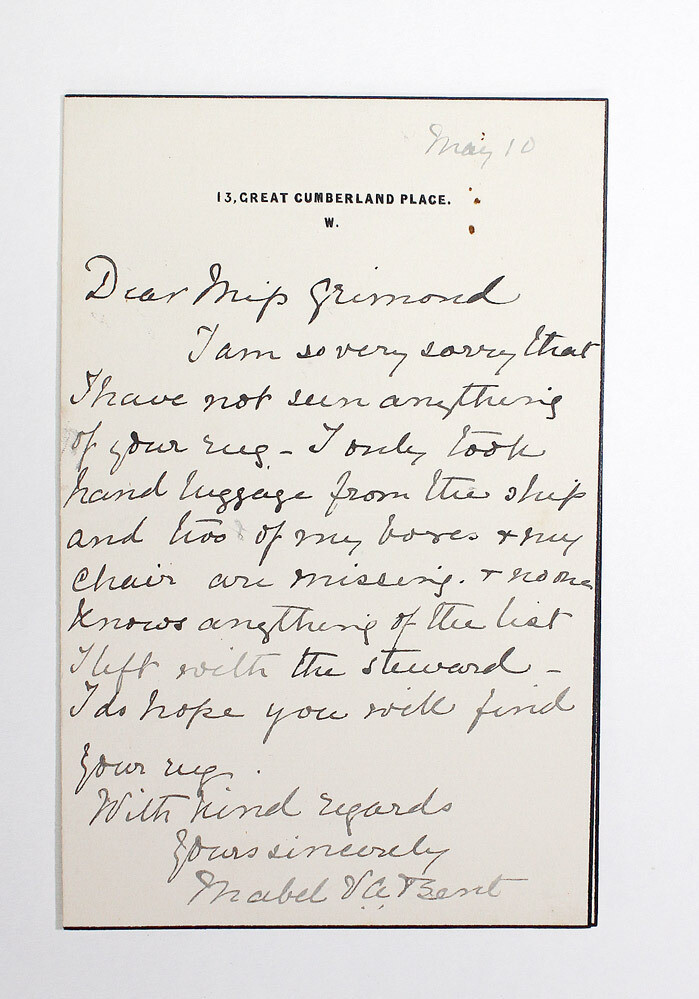 May 10
13, GREAT CUMBERLAND PLACE.
W.
Dear Miss Grimond
I am so very sorry that
I have not seen anything
of your rug - I only took
hand luggage from the ship
and two of my boxes & my
chair are missing. & no one
knows anything of the list
I left with the steward -
I do hope you will find
your rug.
With kind regards
Yours sincerely
Mabel V.A. Bent